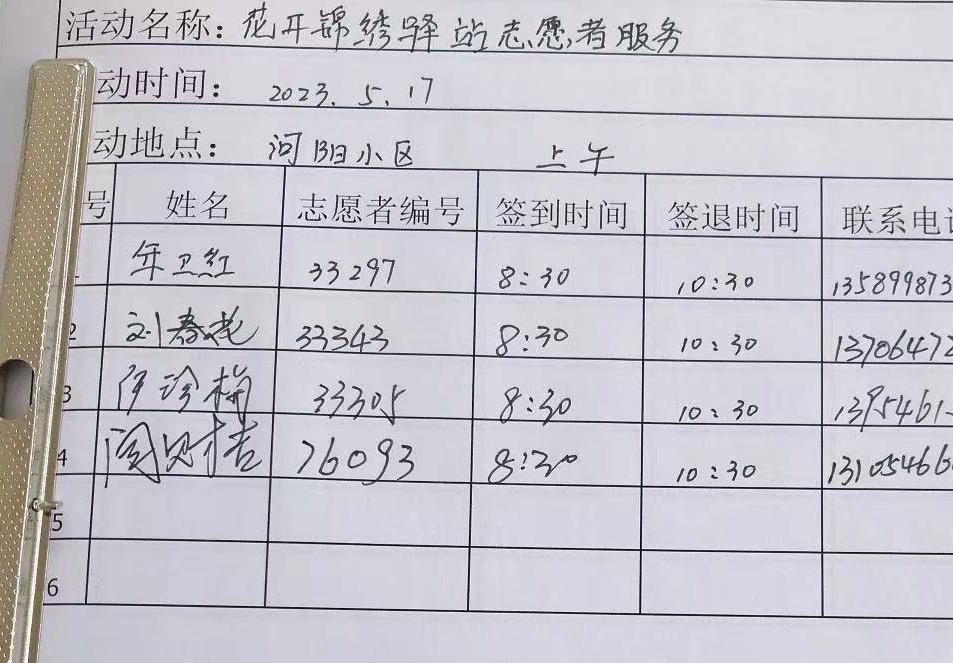 活动名称: 花开锦绣驿站志愿者服务
动时间: 2023.5.17
动地点: 河阳小区 上午
号 姓名 志愿者编号 签到时间 签退时间 联系电
年卫红 33297 8:30 10:30 135899873
2 刘春花 33343 8:30 10:30 13706472
3 33305 8:30 10:30 1395461
4 76093 8:30 10:30 131054660
5
6